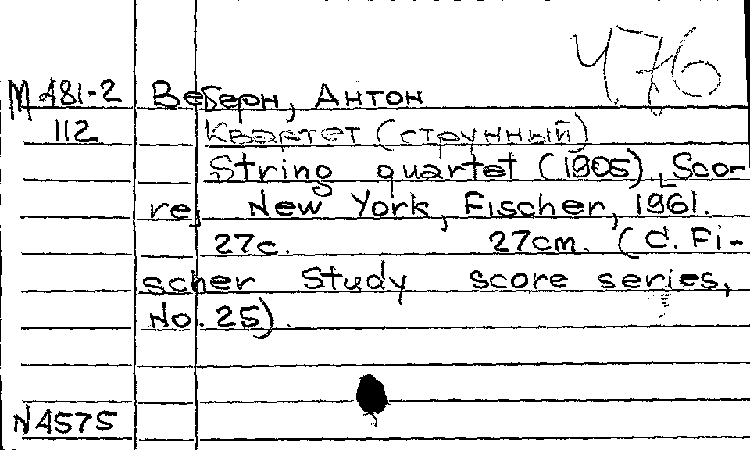 476
М 481-2 Веберн, Антон
112 Квартет (струнный)
String quartet (1905) [Sco-
re]. New York, Fischer, 1961.
27c. 27cm. (C. Fi-
scher Study score series,
No. 25).
N4575